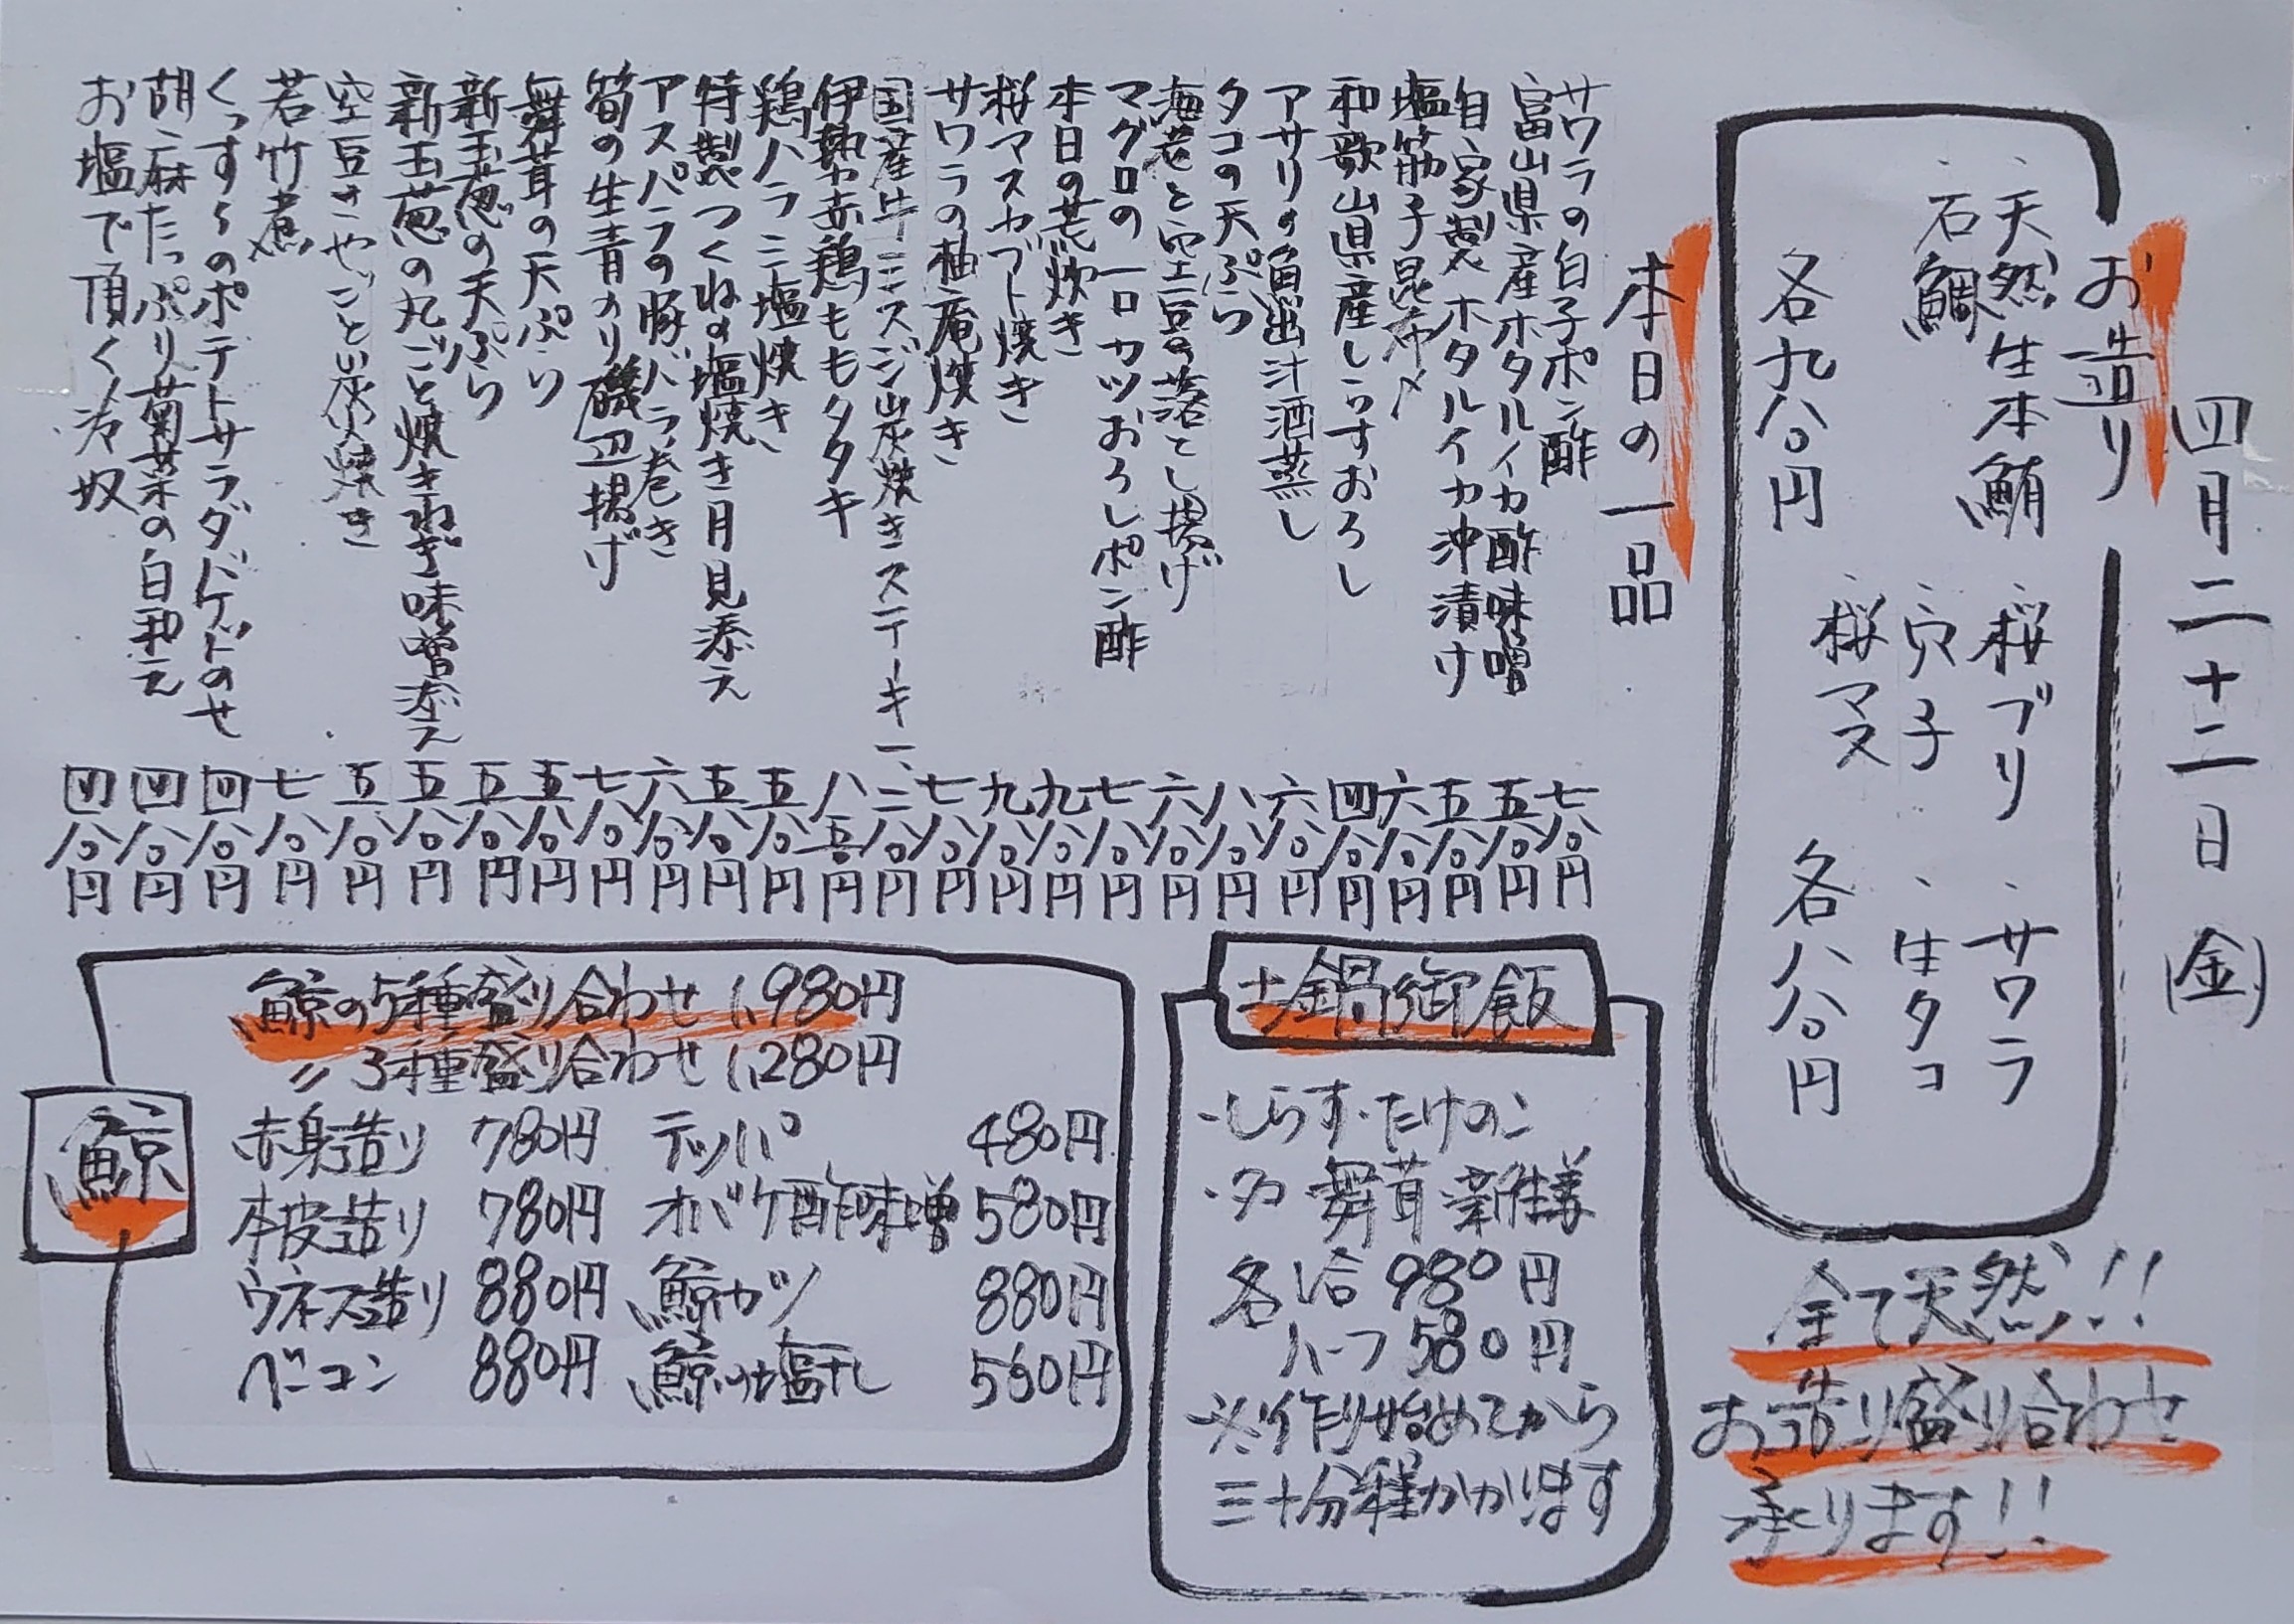 四月二十二日(金)
お造り
・天然生本鮪 ・桜ブリ ・サワラ
・石鯛 ・穴子 ・生タコ
・桜マス
各九八〇円 各八八〇円
全て天然!!
お造り盛り合わせ
承ります!!
本日の一品
サワラの白子ポン酢 七八〇円
富山県産ホタルイカ酢味噌 五八〇円
自家製ホタルイカ沖漬け 五八〇円
塩筋子昆布〆 六八〇円
和歌山県産しらすおろし 四八〇円
アサリの魚出汁酒蒸し 六八〇円
タコの天ぷら 八八〇円
海老と空豆の落とし揚げ 六八〇円
マグロの一口カツおろしポン酢 七八〇円
本日の荒炊き 九八〇円
桜マスカブト焼き 九八〇円
サワラの柚庵焼き 七八〇円
国産牛ミスジ炭焼きステーキ 一、二八〇円
伊勢赤鶏ももタタキ 八五〇円
鶏ハラミ塩焼き 五八〇円
特製つくねの塩焼き月見添え 五八〇円
アスパラの豚バラ巻き 六八〇円
筍の生青のり磯辺揚げ 七八〇円
舞茸の天ぷら 五八〇円
新玉葱の天ぷら 五八〇円
新玉葱の丸ごと焼きねぎ味噌添え 五八〇円
空豆さやごと炭火焼き 五八〇円
若竹煮 七八〇円
くんすべのポテトサラダバゲットのせ 四八〇円
胡麻たっぷり菊菜の白和え 四八〇円
お塩で頂く冷奴 四八〇円
土鍋御飯
・しらす・たけのこ
・タコ・舞茸・新生姜
各1合 980円
ハーフ 580円
※作り始めてから
三十分程かかります
鯨
鯨の5種盛り合わせ 1,980円
〃 3種盛り合わせ 1,280円
赤身造り 780円 テッパ 480円
本皮造り 780円 オバケ酢味噌 580円
ウネス造り 880円 鯨カツ 880円
ベーコン 880円 鯨の塩干し 560円